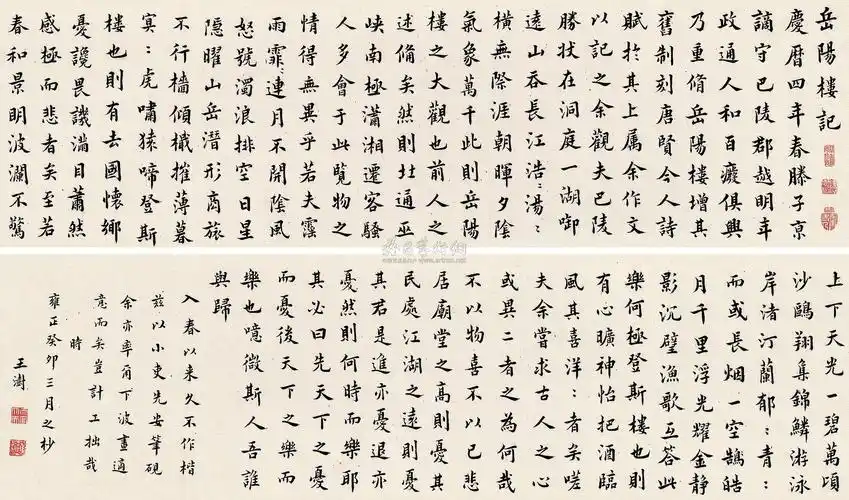 岳陽樓記
慶曆四年春滕子京
謫守巴陵郡越明年
政通人和百癈俱興
乃重脩岳陽樓增其
舊制刻唐賢今人詩
賦於其上属余作文
以記之余觀夫巴陵
勝狀在洞庭一湖啣
遠山吞長江浩〻湯〻
橫無際涯朝暉夕陰
氣象萬千此則岳陽
樓之大觀也前人之
述俻矣然則北通巫
峽南極瀟湘遷客騷
人多會于此覽物之
情得無異乎若夫霪
雨霏〻連月不開陰風
怒號濁浪排空日星
隱曜山岳潛形商旅
不行檣傾檝摧薄暮
冥〻虎嘯猿啼登斯
樓也則有去國懷鄉
憂讒畏譏滿目蕭然
感極而悲者矣至若
春和景明波瀾不驚
上下天光一碧萬頃
沙鷗翔集錦鱗游泳
岸渚汀蘭郁〻青〻
而或長烟一空鵠皓
月千里浮光耀金静
影沉璧漁歌互答此
樂何極登斯樓也則
有心曠神怡把酒臨
風其喜洋〻者矣嗟
夫余嘗求古人之心
或異二者之為何哉
不以物喜不以己悲
居廟堂之高則憂其
民處江湖之遠則憂
其君是進亦憂退亦
憂然則何時而樂耶
其必曰先天下之憂
而憂後天下之樂而
樂也噫微斯人吾誰
與歸
入春以来久不作楷
兹以小吏先安筆硯
余亦率爾下波畫適
意而矣豈計工拙哉
時
雍正癸卯三月之杪
王澍